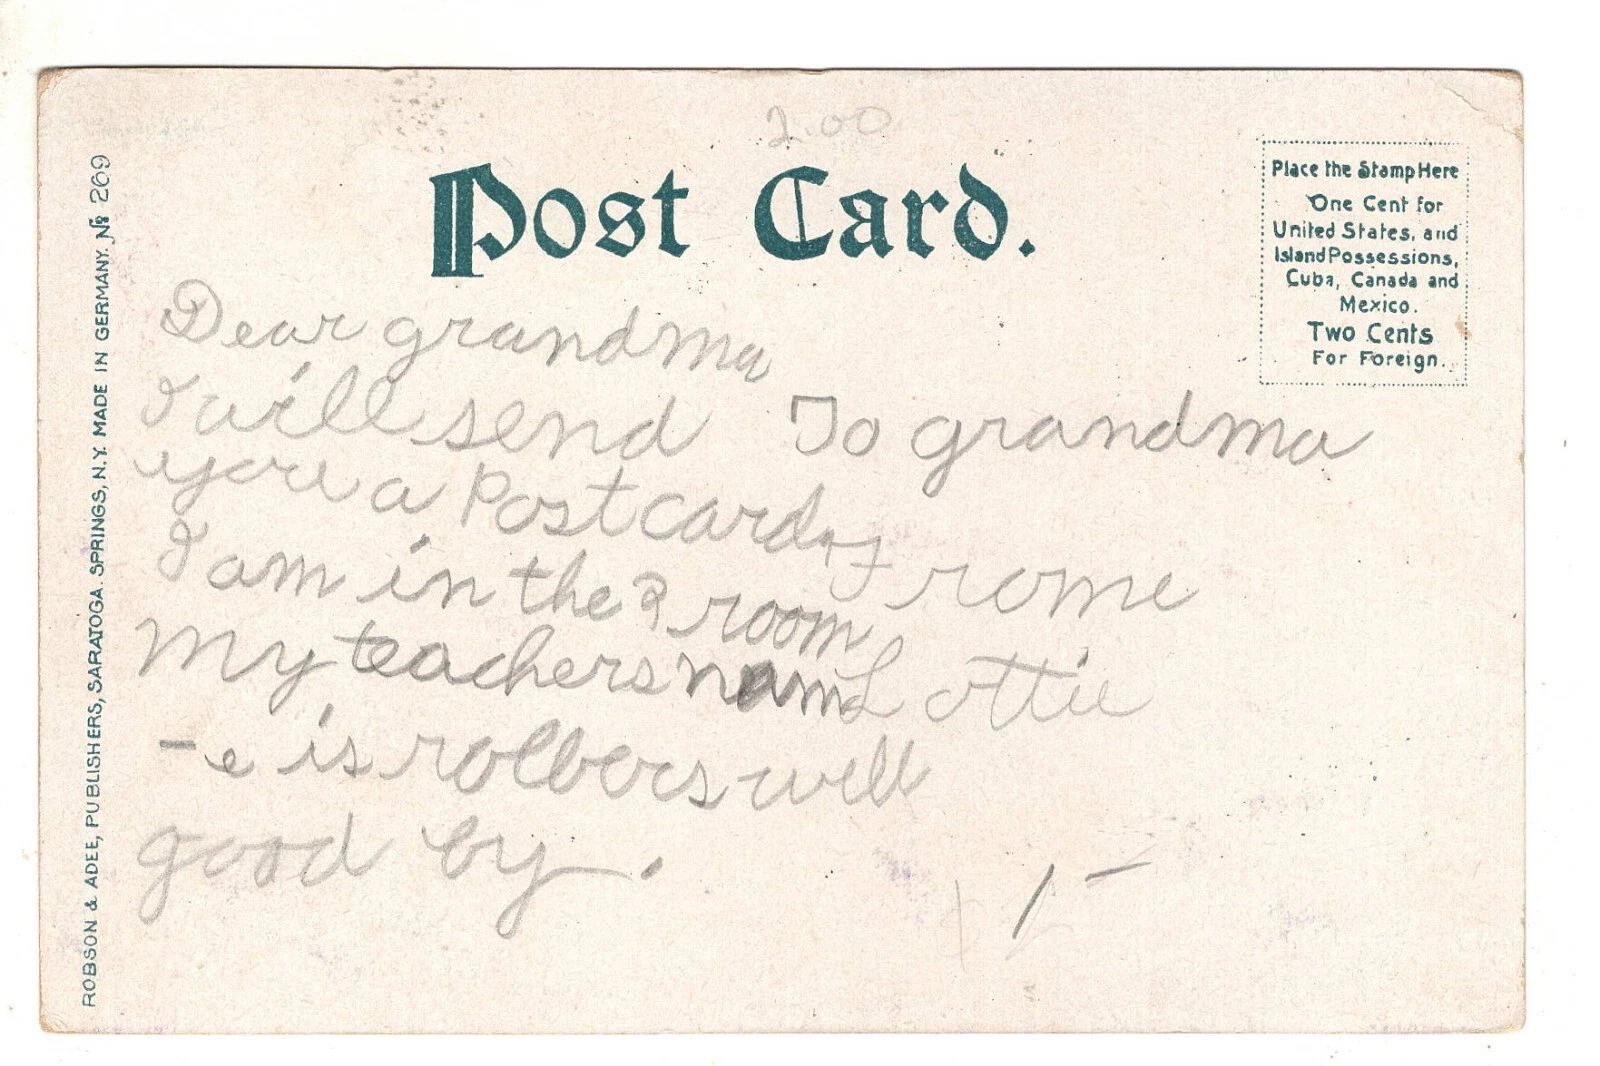 2.00
Post Card.
Place the Stamp Here
One Cent for
United States, and
Island Possessions,
Cuba, Canada and
Mexico.
Two Cents
For Foreign.
Dear grandma
I will send
you a Postcard,
I am in the 2 room
My teachers nam
-e is rolbers well
good by.
To grandma
Frome
Lottie
1 -
ROBSON & ADEE, PUBLISHERS, SARATOGA SPRINGS, N.Y. MADE IN GERMANY. No 269